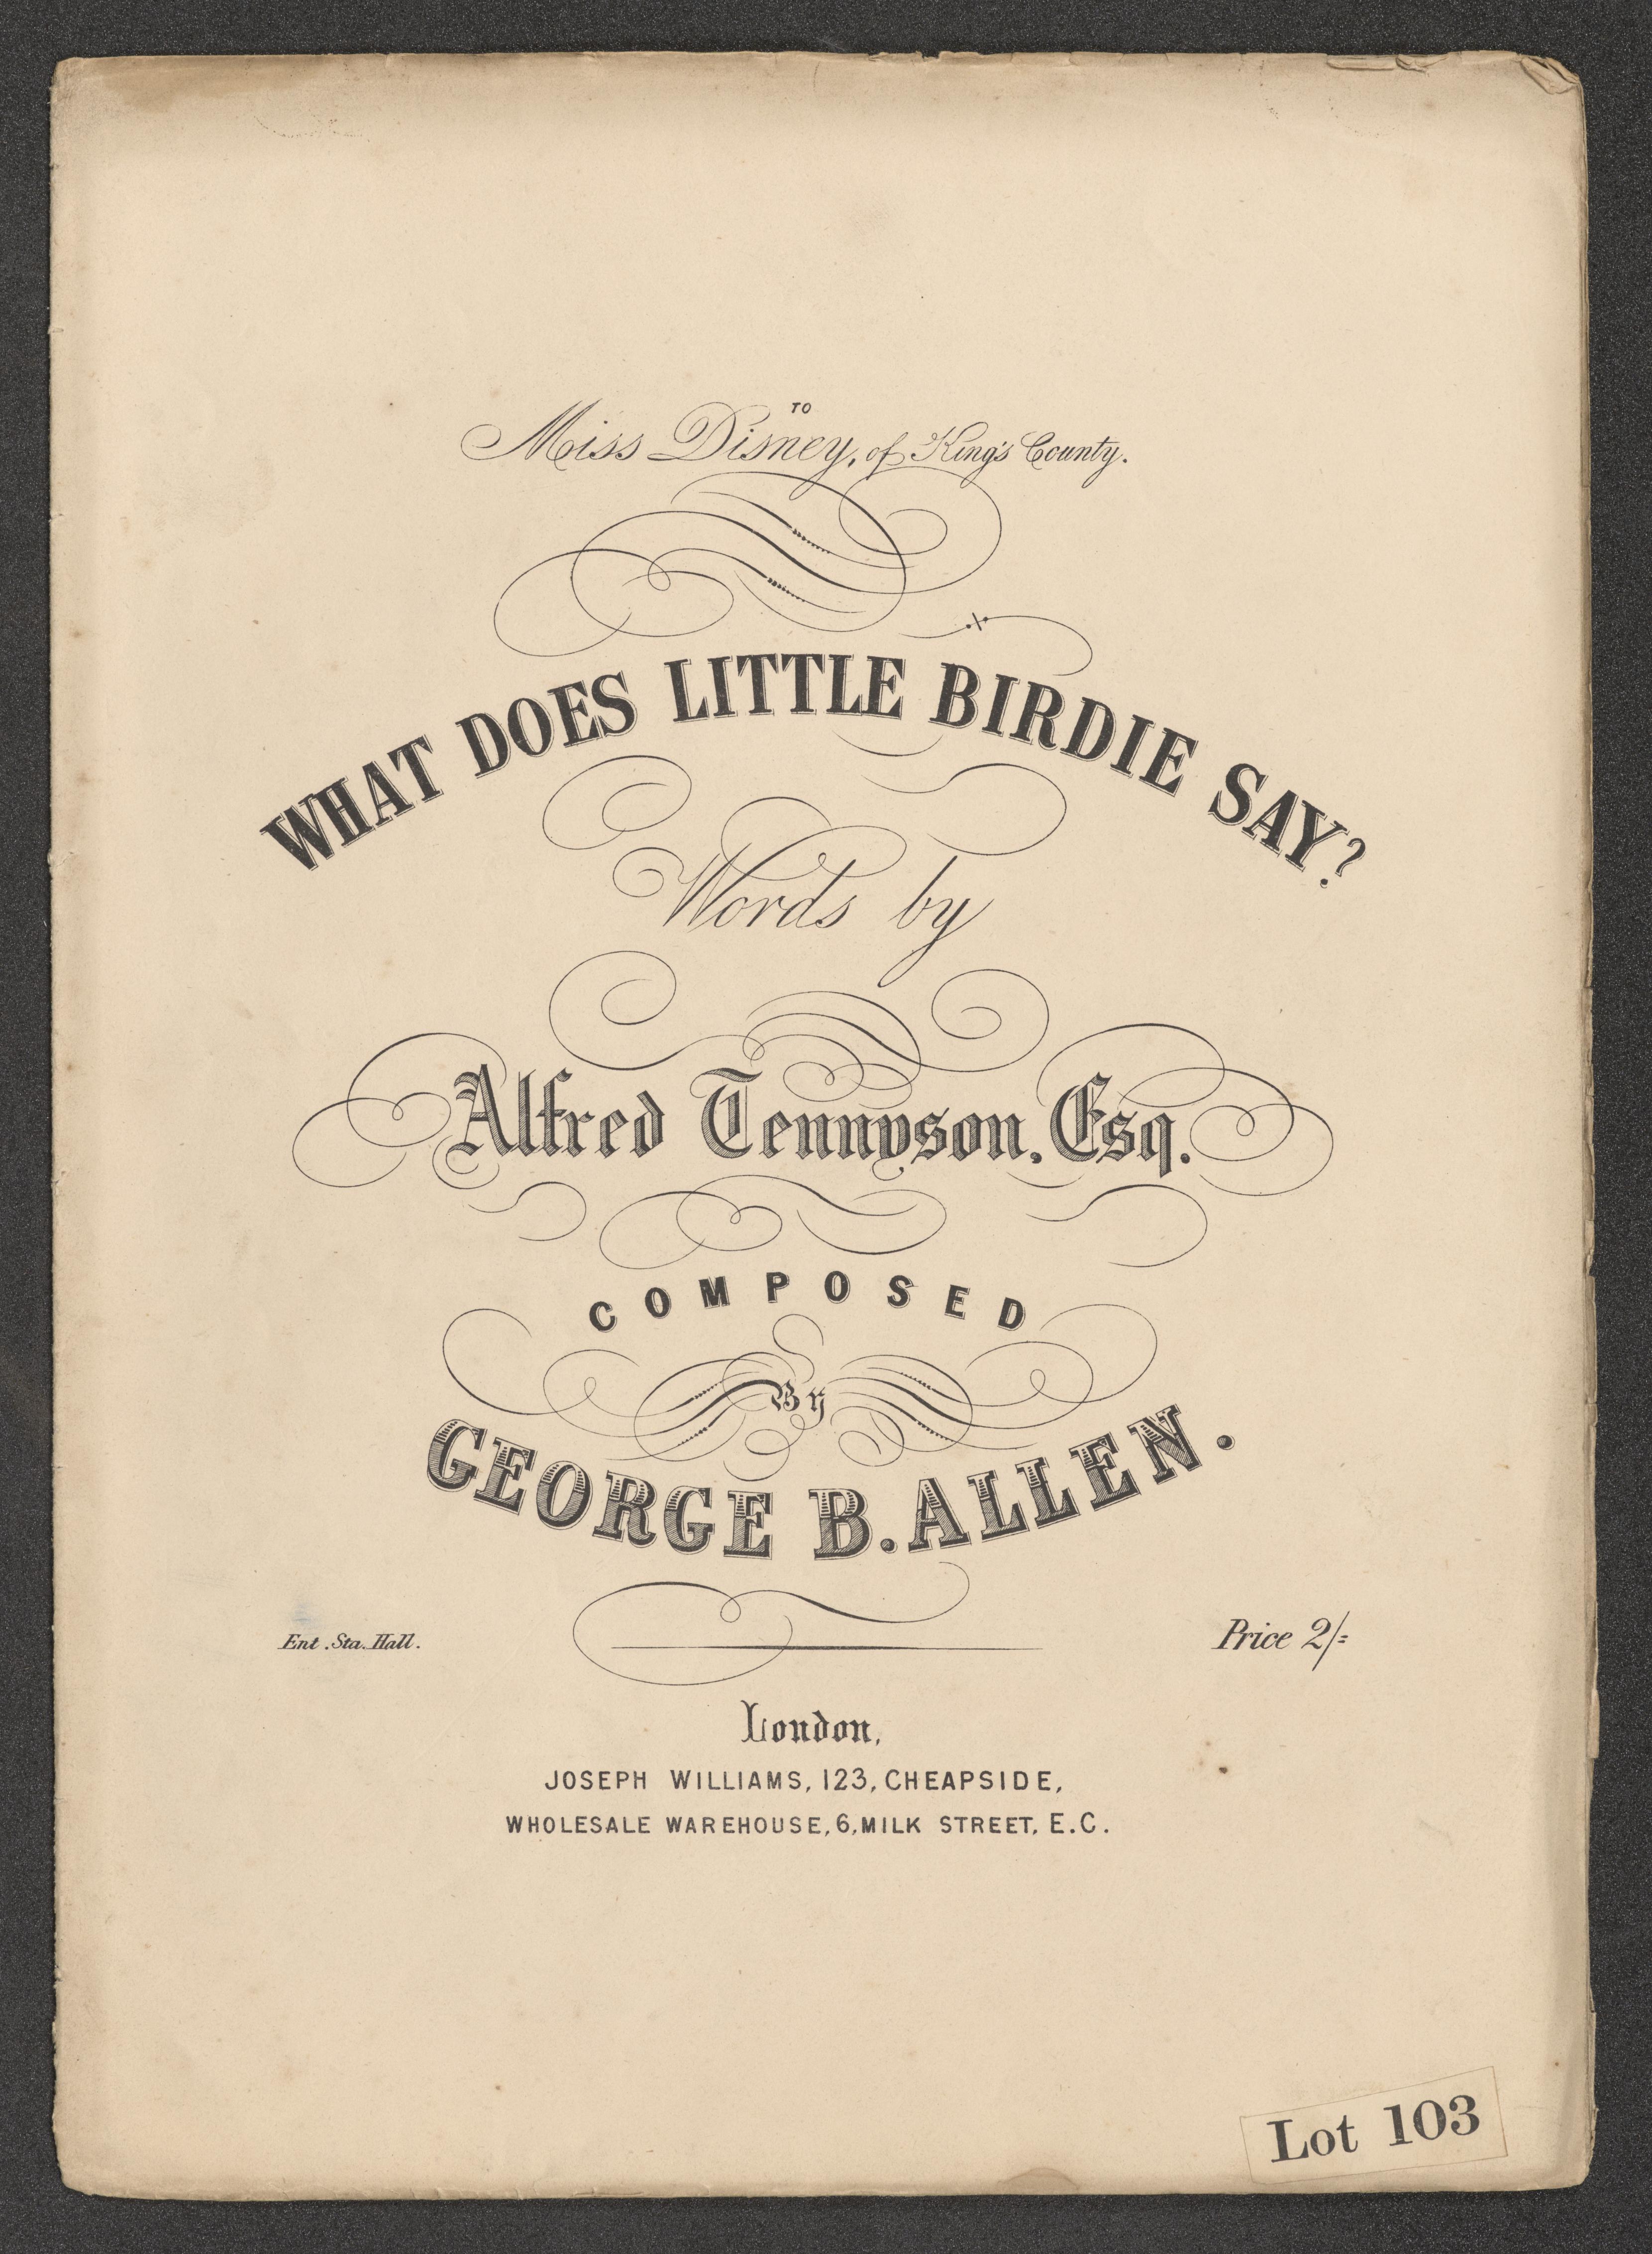 TO
Miss Disney, of King's County.
WHAT DOES LITTLE BIRDIE SAY?
Words by
Alfred Tennyson, Esq.
COMPOSED
By
GEORGE B. ALLEN.
Ent. Sta. Hall.
Price 2/=
London,
JOSEPH WILLIAMS, 123, CHEAPSIDE,
WHOLESALE WAREHOUSE, 6, MILK STREET, E.C.
Lot 103